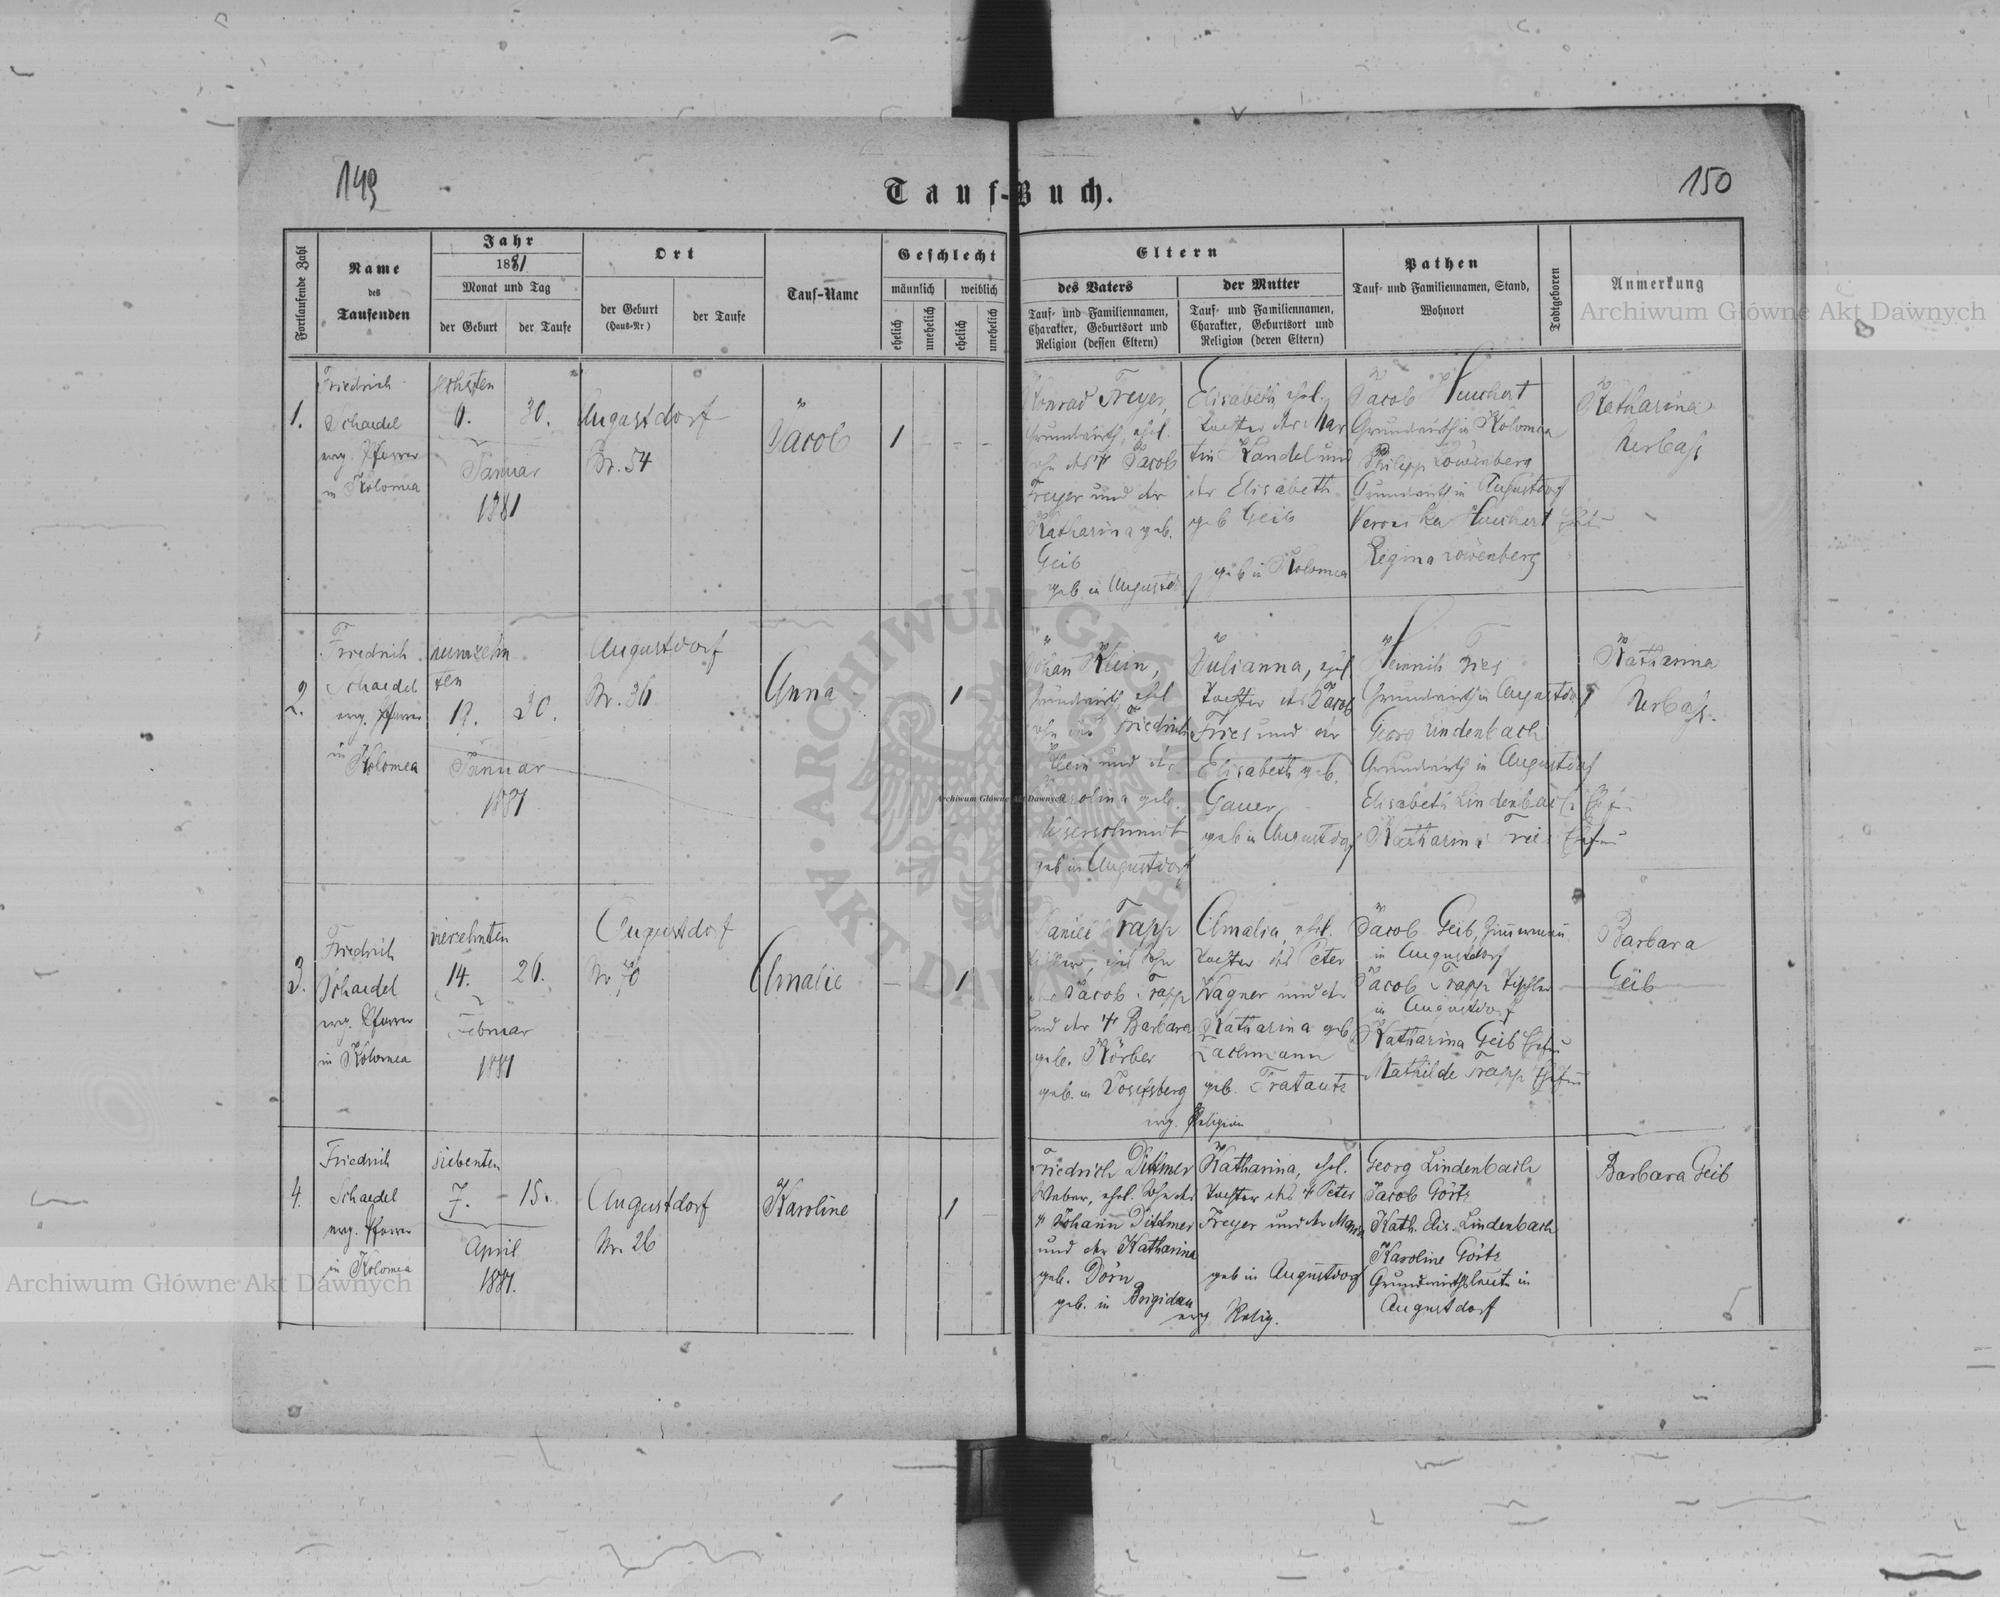 149
150
Tauf-Buch.
Fortlaufende Zahl
Name
des
Taufenden
Jahr
1881
Monat und Tag
der Geburt
der Taufe
Ort
der Geburt
(Haus-Nr)
der Taufe
Tauf-Name
Geschlecht
männlich
weiblich
ehelich
unehelich
ehelich
unehelich
Eltern
des Vaters
Tauf- und Familiennamen,
Charakter, Geburtsort und
Religion (dessen Eltern)
der Mutter
Tauf- und Familiennamen,
Charakter, Geburtsort und
Religion (deren Eltern)
Pathen
Tauf- und Familiennamen, Stand,
Wohnort
Todtgeboren
Anmerkung
Archiwum Główne Akt Dawnych
1.
Friedrich
Schaedel
evg. Pfarrer
in Kolomea
sechsten
6.
30.
Januar
1881
Augustdorf
Nr. 54
Jacob
1 - - -
Konrad Freyer,
Grundwirth, ehel.
Sohn des † Jacob
Freyer und der
Katharina geb.
Geib
geb. in Augustdorf
Elisabeth ehel.
Tochter des Mar
tin Kandel und
der Elisabeth
geb Geib
geb in Kolomea
Jacob Huchert
Grundwirth in Kolomea
Philipp Löwenberg
Grundwirth in Augustdorf
Veronika Huchert
Regina Löwenberg
Katharina
Nerbaß
2.
Friedrich
Schaedel
evg. Pfarrer
in Kolomea
neunzehn
ten
19.
30.
Januar
1881
Augustdorf
Nr. 36
Anna
- - 1
Johan Klein,
Grundwirth, ehel
Sohn des Friedrich
Klein und der
Karolina geb.
geb in Augustdorf
Julianna, ehel
Tochter des Jacob
Fries und der
Elisabeth geb.
Gauer
geb in Augustdorf
Heinrich Fries
Grundwirth in Augustdorf
Georg Lindenbach
Grundwirth in Augustdorf
Elisabeth Lindenbach Ehefr
Katharina Fries Ehefrau
Katharina
Nerbaß.
Archiwum Główne Akt Dawnych
ARCHIWUM GŁÓWNE AKT DAWNYCH
3.
Friedrich
Schaedel
evg. Pfarrer
in Kolomea
vierzehnten
14.
26.
Februar
1881
Augustdorf
Nr. 70
Amalie
- - 1
Daniel Trapp
Tischler, ehel Sohn
des Jacob Trapp
und der † Barbara
geb. Körber
geb. in Josefsberg
Amalia, ehel.
Tochter des Peter
Wagner und der
Katharina geb
Lachmann
geb. Fratautz
evg. Religion
Jacob Geib, Zimmermann
in Augustdorf
Jacob Trapp Tischler
in Augustdorf
Katharina Geib Ehefrau
Mathilde Trapp Ehefrau
Barbara
Geib
4.
Friedrich
Schaedel
evg. Pfarrer
in Kolomea
siebenten
7. - 15.
April
1881.
Augustdorf
Nr. 26
Karoline
1
Friedrich Dittmer
Weber, ehel. Sohn des
† Johann Dittmer
und der Katharina
geb. Dörn
geb. in Brigidau
Katharina, ehel.
Tochter des † Peter
Freyer und der Maria
geb in Augustdorf
evg Relig.
Georg Lindenbach
Jacob Görtz
Kath. Elis. Lindenbach
Karoline Görtz
Grundwirthsleute in
Augustdorf
Barbara Geib
Archiwum Główne Akt Dawnych